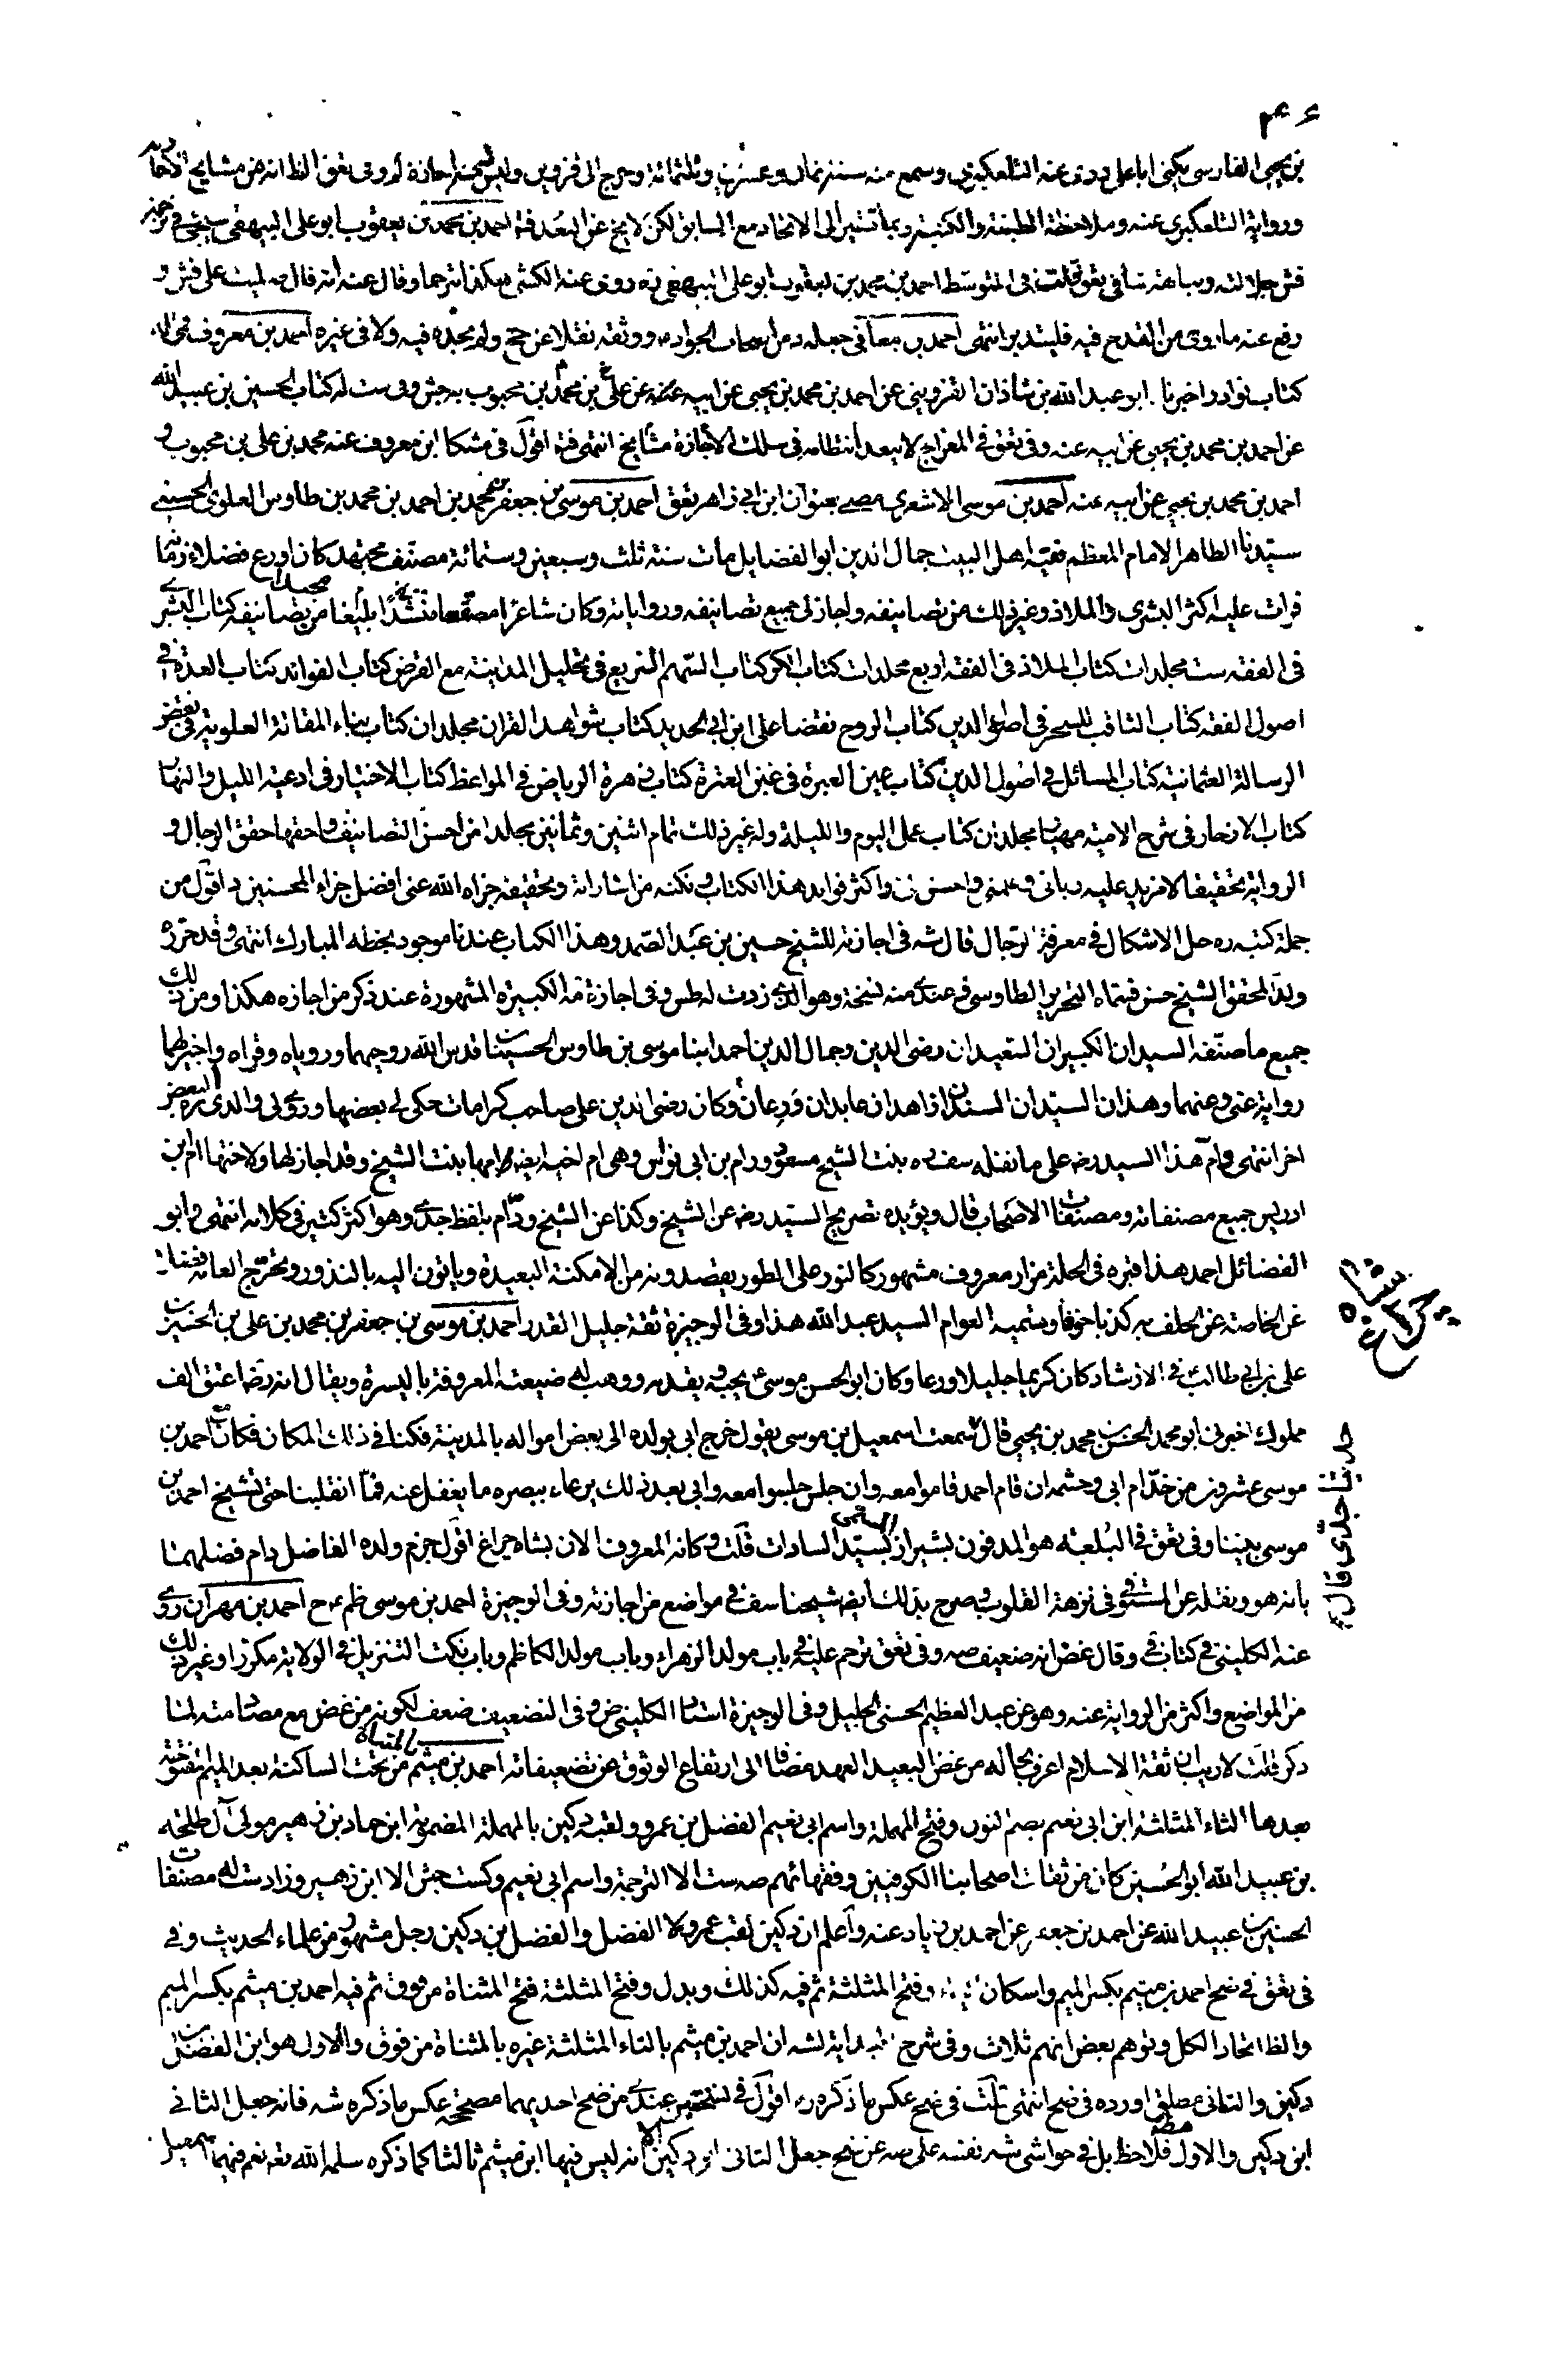 بن يحيى الفارسى يكنى ابا على روى عنه التلعكبرى وسمع منه سنة ثمان وعشرين وثلثمائة وخرج الى قزوين وليس له منه اجازة لم وفى تعق الظ انه من مشايخ الاجازة
ورواية التلعكبرى عنه وملاحظة الطبقة والكنية ربما تشير الى الاتحاد مع السابق لكن لا يخ عن البعد فت احمد بن محمد بن يعقوب ابو على البيهقى سيجئ فى ترجمة
فش جلالته ونباهته تعق قلت فى المتوسط احمد بن محمد بن يعقوب ابو على البيهقى ره روى عنه الكشى هكذا مترحما وقال عنه انه قال صليت على فش و
رفع عنه ما روى من القدح فيه فليتدبر انتهى احمد بن معافى جعله د من اصحاب الجواد ع ووثقه نقلا عن جخ ولم نجده فيه ولا فى غيره احمد بن معروف قمى له
كتاب نوادر اخبرنا ابو عبد الله بن شاذان القزوينى عن احمد بن محمد بن يحيى عن ابيه عنه عن على بن محمد بن محبوب به جش وفى ست له كتاب الحسين بن عبيد الله
عن احمد بن محمد بن يحيى عن ابيه عنه وفى تعق فى المعراج لا يبعد انتظامه فى سلك مشايخ الاجازة انتهى فت اقول فى مشكا ابن معروف عنه محمد بن على بن محبوب و
احمد بن محمد بن يحيى عن ابيه عنه احمد بن موسى الاشعرى مضى بعنوان ابن ابى زاهر تعق احمد بن موسى بن جعفر بن محمد بن احمد بن محمد بن احمد بن محمد بن طاوس العلوى الحسنى
سيدنا الطاهر الامام المعظم فقيه اهل البيت جمال الدين ابو الفضايل مات سنة ثلث وسبعين وستمائة مصنف مجتهد كان اورع فضلاء زمانه
قرات عليه اكثر البشرى والملاذ وغير ذلك من تصانيفه واجاز لى جميع تصانيفه ورواياته وكان شاعرا مصقعا بليغا منشدا مجيدا من تصانيفه كتاب البشرى
فى الفقه ست مجلدات كتاب الملاذ فى الفقه اربع مجلدات كتاب الكر كتاب السهم السريع فى تحليل المداينة مع القرض كتاب الفوائد كتاب العدة فى
اصول الفقه كتاب الثاقب المسخر فى اصول الدين كتاب الروح نقضا على ابن ابى الحديد كتاب شواهد القران مجلدان كتاب بناء المقالة العلوية فى نقض
الرسالة العثمانية كتاب المسائل فى اصول الدين كتاب عين العبرة فى غبن العترة كتاب زهرة الرياض فى المواعظ كتاب الاختيار فى ادعية الليل والنهار
كتاب الازهار فى شرح لامية مهيار مجلدان كتاب عمل اليوم والليلة وله غير ذلك تمام اثنين وثمانين مجلدا من احسن التصانيف واحقها حقق الرجال و
الرواية تحقيقا لا مزيد عليه ربانى وعلمنى واحسن الى واكثر فوايد هذا الكتاب ونكته من اشاراته وتحقيقه جزاه الله عنى افضل جزاء المحسنين د اقول من
جملة كتبه ره حل الاشكال فى معرفة الرجال قال شه فى اجازته للشيخ حسين بن عبد الصمد وهذا الكتاب عندنا موجود بخطه المبارك انتهى وقد حرره
ولد المحقق الشيخ حسن فسماه التحرير الطاوسى وعندى منه نسخة وهو الذى زدت له طس وفى اجازة مه الكبيرة المشهورة عند ذكر من اجازه هكذا ومن ذلك
جميع ما صنفه السيدان الكبيران السعيدان رضى الدين وجمال الدين احمد ابنا موسى بن طاوس الحسينيان قدس الله روحهما وروياه وقراه واجيز لهما
روايته عنى وعنهما وهذان السيدان المسندان زاهدان عابدان ورعان وكان رضى الدين على صاحب كرامات حكى لى بعضها وروى لى والدى ره البعض
اخر انتهى وام هذا السيد رضه على ما نقله سف ره بنت الشيخ مسعود ورام بن ابى فراس وهى ام اخيه ايضا وامها بنت الشيخ وقد اجاز لها ولاختها ام ابن
ادريس جميع مصنفاته ومصنفات الاصحاب قال ويؤيده تصريح السيد رضه عن الشيخ وكذا عن الشيخ ورام بلفظ جدى وهو اكثر كثير فى كلامه انتهى وابو
الفضائل احمد هذا قبره فى الحلة مزار معروف مشهور كالنور على الطور يقصدونه من الامكنة البعيدة وياتون اليه بالنذور ويتحرج العامة فضلا
عن الخاصة عن الحلف به كذبا خوفا وتسميه العوام السيد عبد الله هذا وفى الوجيزة ثقة جليل القدر احمد بن موسى بن جعفر بن محمد بن على بن الحسين بن
على بن ابى طالب فى الارشاد كان كريما جليلا ورعا وكان ابو الحسن موسى ع يحبه ويقدمه ووهب له ضيعته المعروفة باليسيرة ويقال انه رضه اعتق الف
مملوك اخبرنى ابو محمد الحسن بن محمد بن يحيى قال حدثنا جدى قال سمعت اسمعيل بن موسى يقول خرج ابى بولده الى بعض امواله بالمدينة فكنا فى ذلك المكان فكان مع احمد بن
موسى عشرون من خدام ابى وحشمه ان قام احمد قاموا معه وان جلس جلسوا معه وابى بعد ذلك يرعاه ببصره ما يغفل عنه فما انقلبنا حتى تشيخ احمد بن
موسى بيننا وفى تعق فى البلغة هو المدفون بشيراز المسمى بسيد السادات قلت وكانه المعروف الان بشاه چراغ اقول جزم ولده الفاضل دام فضلهما
بانه هو ونقله عن المستوفى فى نزهة القلوب وصرح بذلك ايضا شيخنا سف فى مواضع من اجازته وفى الوجيزة احمد بن موسى ظم ع ح احمد بن مهران روى
عنه الكلينى فى كتاب فى وقال غض انه ضعيف صه وفى تعق ترحم عليه فى باب مولد الزهراء وباب مولد الكاظم وباب نكت التنزيل فى الولاية مكررا وغير ذلك
من المواضع واكثر من الرواية عنه وهو عن عبد العظيم الحسنى الجليل وفى الوجيزة استاد الكلينى ض وفى التضعيف ضعف لكونه من غض مع مصادمته لما
ذكر قلت لا ريب ان ثقة الاسلام اعرف بحاله من غض البعيد العهد مضافا الى ارتفاع الوثوق عن تضعيفاته احمد بن ميثم بالمثناة من تحت الساكنة بعد الميم المفتوحة
بعدها الثاء المثلثة ابن ابى نعيم بضم النون وفتح المهملة واسم ابى نعيم الفضل بن عمرو ولقبه دكين بالمهملة المضمومة ابن حماد بن زهير مولى آل طلحة
بن عبيد الله ابو الحسين كان من ثقات اصحابنا الكوفيين وفقهائهم صه ست الا الترجمة واسم ابى نعيم وكست جش الا ابن زهير وزاد ست له مصنفات
الحسين بن عبيد الله عن احمد بن جعفر عن احمد بن زياد عنه واعلم ان دكين لقب عمرو لا الفضل والفضل بن دكين رجل مشهور من علماء الحديث وفى
فى تعق فى ضح احمد بن ميتم بكسر الميم واسكان الياء وفتح المثلثة ثم فيه كذلك وبدل وفتح المثلثة فتح المثناة من فوق ثم فيه احمد بن ميثم بكسر الميم
والظ اتحاد الكل وتوهم بعض انهم ثلاث وفى شرح البداية لشه ان احمد بن ميثم بالثاء المثلثة غيره بالمثناة من فوق والاول هو ابن الفضل بن
دكين والثانى مطلق اورده فى ضح انتهى قلت فى ضح عكس ما ذكره ره اقول فى نسختين عندى من ضح احديهما مصححة عكس ما ذكره شه فانه جعل الثانى
ابن دكين والاول مطلقا فلاحظ بل فى حواشى شه نفسه على صه عن ضح جعل الثانى ابن دكين الا انه ليس فيها ابن ميثم ثالثا كما ذكره سلمه الله تعه نعم فيهما
شاه چراغ